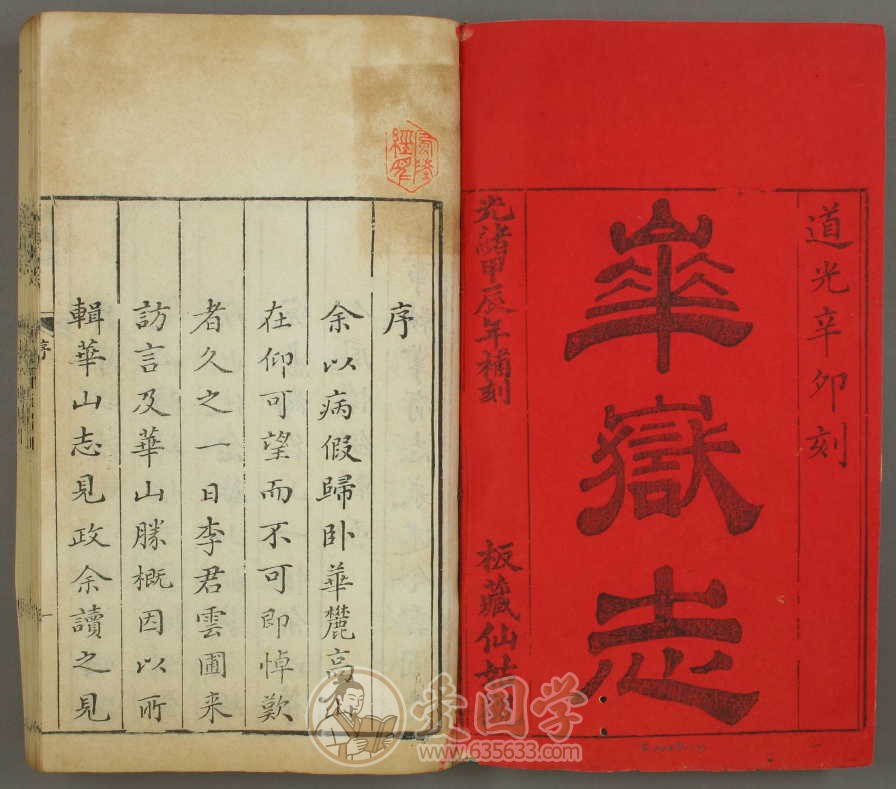 道光辛卯刻
華嶽志
光緒甲辰年補刻
板藏仙
序
余以病假歸卧華麓高
在仰可望而不可即悼歎
者久之一日李君雲圃来
訪言及華山勝概因以所
輯華山志見政余讀之見
序
爱国学
www.635633.com